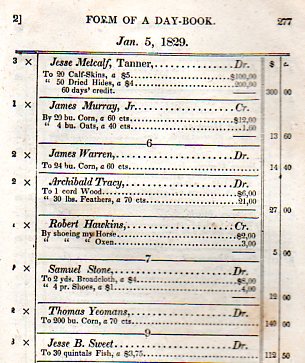 2] FORM OF A DAY-BOOK. 277
Jan. 5, 1829.
3 × Jesse Metcalf, Tanner,..............Dr. $ c
To 20 Calf-Skins, a $5.............$100,00
" 50 Dried Hides, a $4.............200,00
60 days' credit. 300 00
1 × James Murray, Jr. Cr.
By 20 bu. Corn, a 60 cts.............$12,00
" 4 bu. Oats, a 40 cts.............1,60
13 60
6
2 × James Warren,.............Dr.
To 24 bu. Corn, a 60 cts. 14 40
2 × Archibald Tracy,.............Dr.
To 1 cord Wood.............$6,00
" 30 lbs. Feathers, a 70 cts.............21,00
27 00
× Robert Hawkins,.............Cr.
By shoeing my Horse.............$2,00
" " " Oxen.............3,00
5 00
7
× Samuel Stone,.............Dr.
To 2 yds. Broadcloth, a $4.............$8,00
" 4 pr. Shoes, a $1.............4,00
12 00
2 × Thomas Yeomans,.............Dr.
To 200 bu. Corn, a 70 cts. 140 00
9
3 × Jesse B. Sweet.............Dr.
To 30 quintals Fish, a $3,75. 112 50